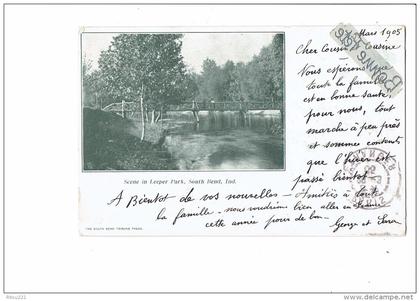 Mars 1905
Cher Cousin Cousine
Nous espérons que
toute la famille
est en bonne santé,
pour nous, tout
marche à peu près
et sommes contents
que l'hiver est
passé bientot -
Scene in Leeper Park, South Bend, Ind.
A Bientôt de vos nouvelles - Amitiés à toute
la famille - nous voudrions bien aller en France
cette année pour de bon -
George et
THE SOUTH BEND TRIBUNE PRESS.